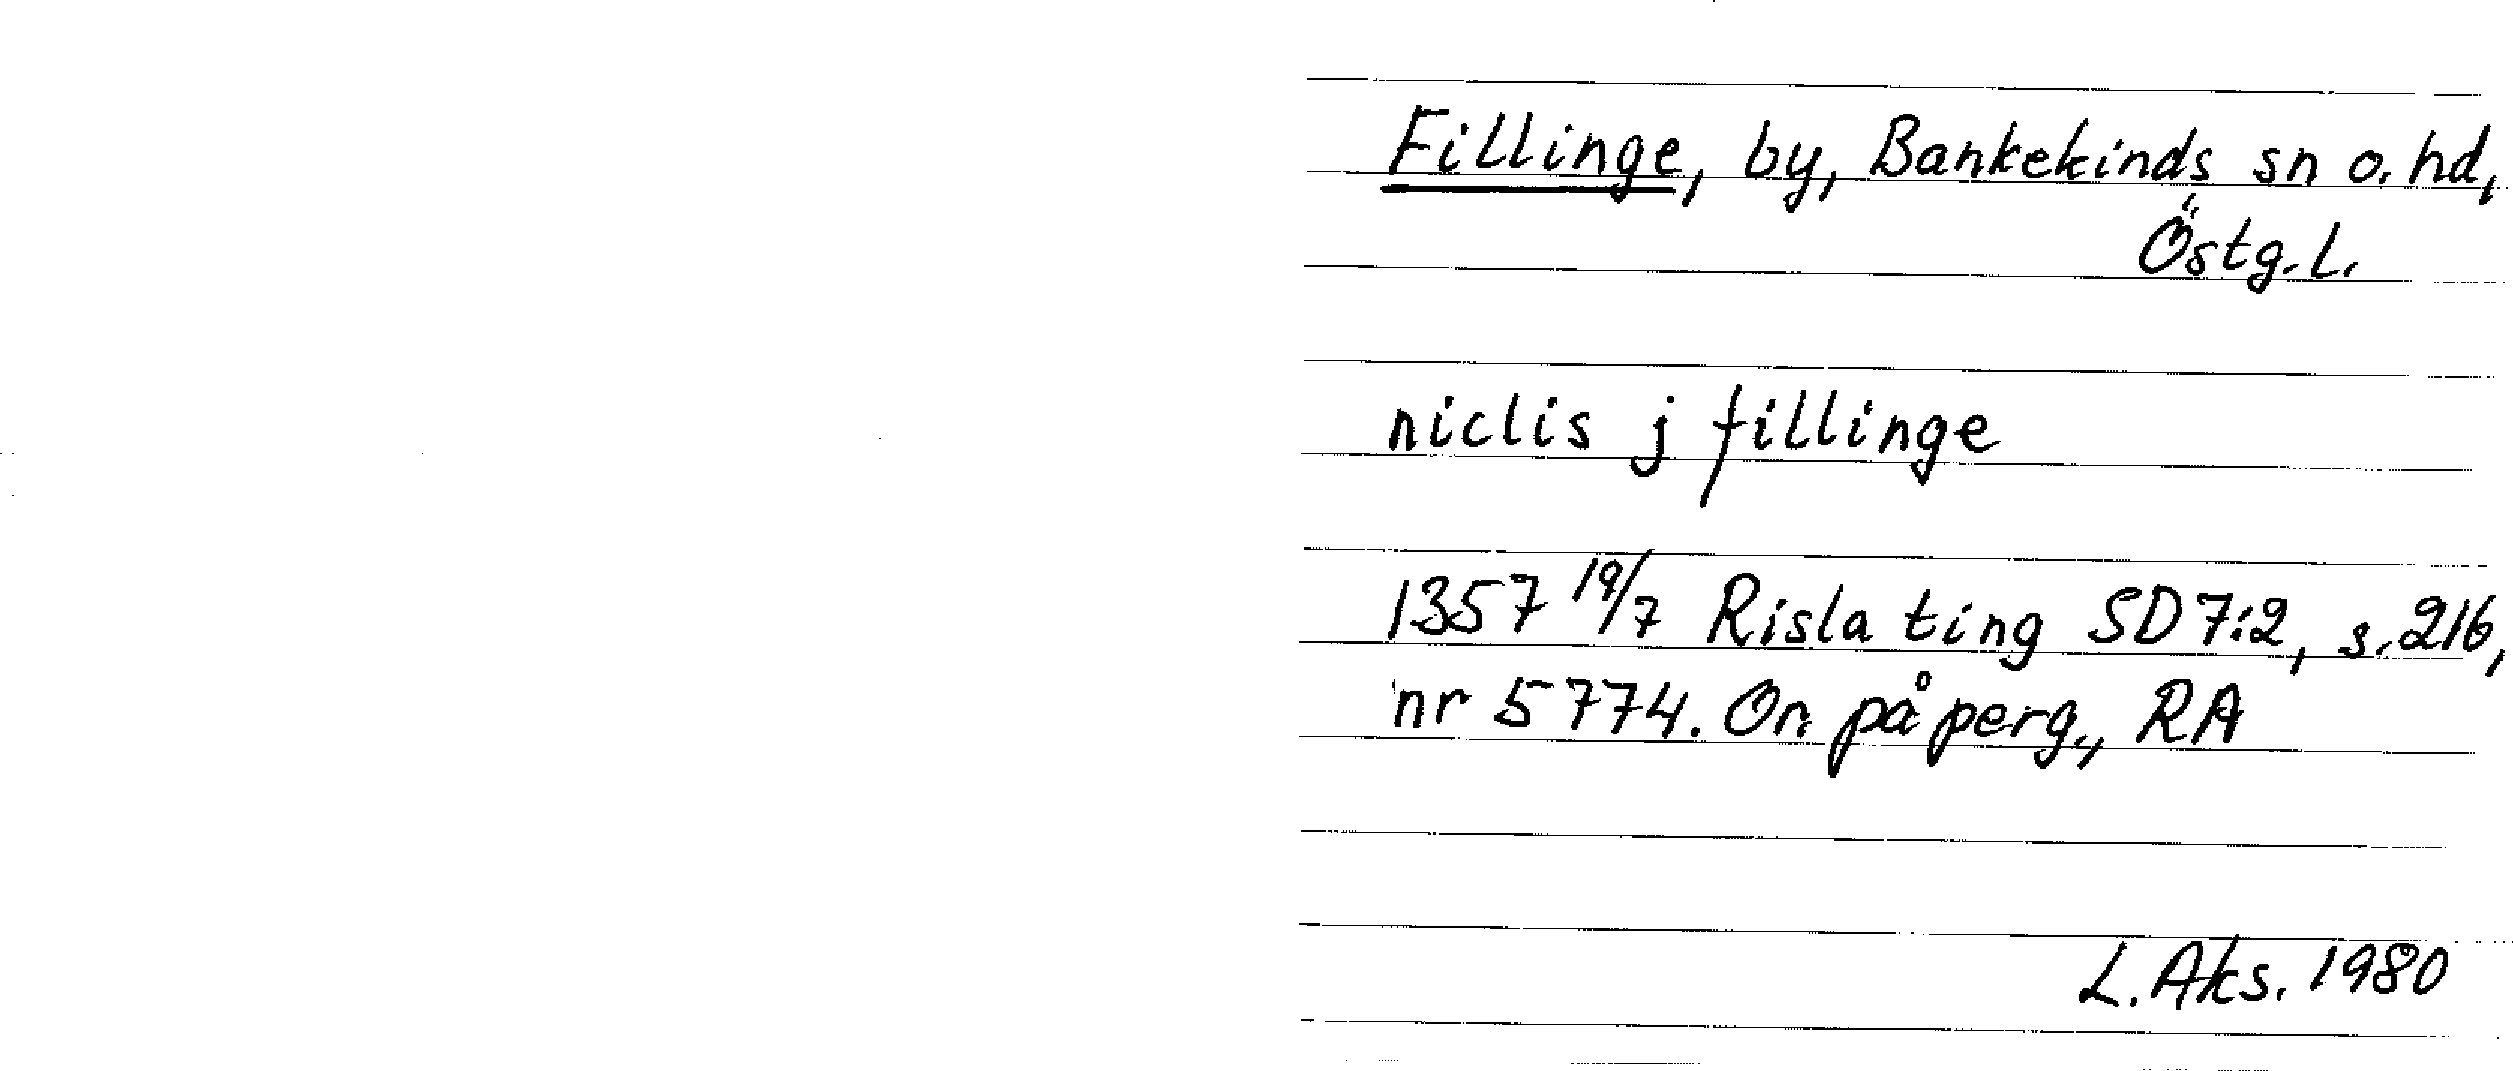 Fillinge, by, Bankekinds sn o. hd,
Östg. L.
niclis j fillinge
1357 19/7 Risla ting SD 7:2, s. 216,
nr 5774. Or. på perg., RA
L. Aks. 1980